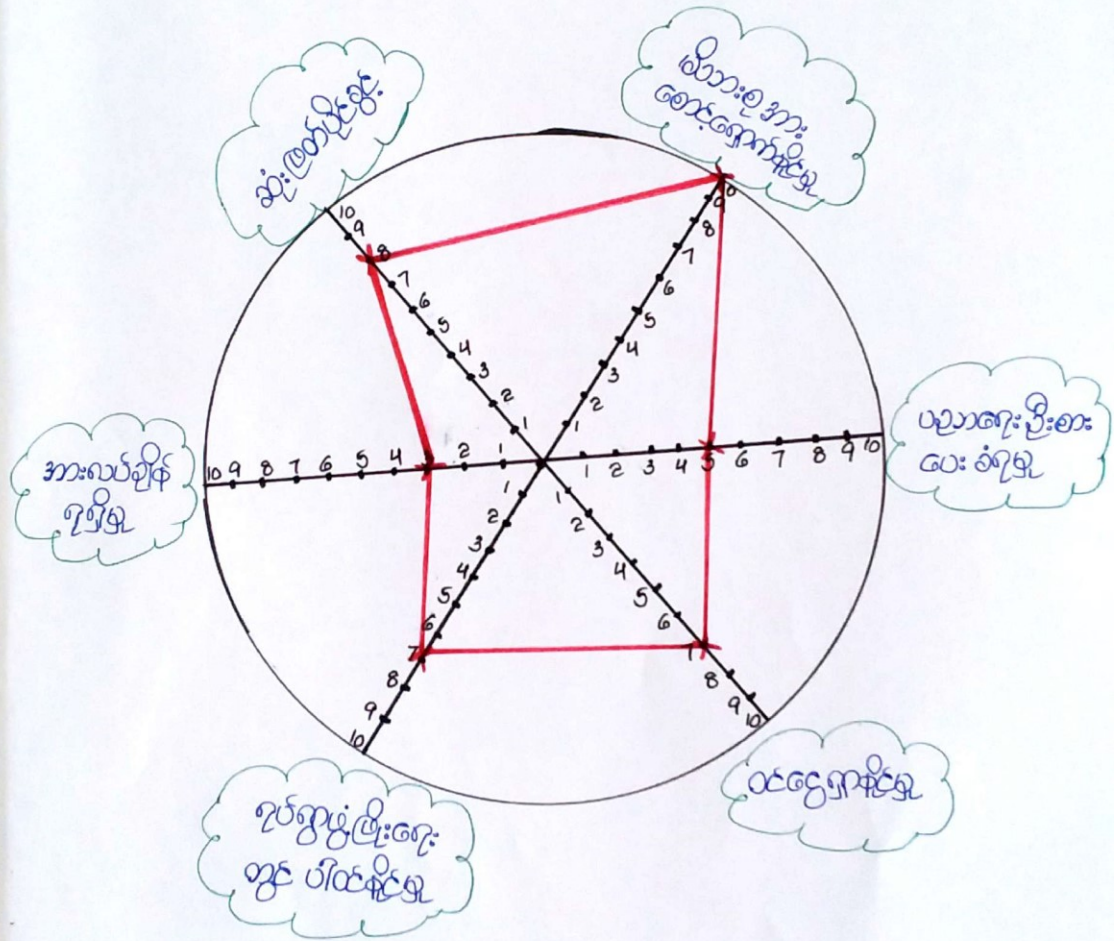 ဆုံးဖြတ်ပိုင်ခွင့်
မိသားစုအား
စောင့်ရှောက်နိုင်မှု
ပညာရေးဦးစား
ပေးခံရမှု
ဝင်ငွေရှာနိုင်မှု
ရပ်ရွာဖွံ့ဖြိုးရေး
တွင် ပါဝင်နိုင်မှု
အားလပ်ချိန်
ရရှိမှု
10 9 8 7 6 5 4 3 2 1
1 2 3 4 5 6 7 8 9
1 2 3 4 5 6 7 8 9 10
1 2 3 4 5 6 7 8 9 10
1 2 3 4 5 6 7 8 9 10
10 9 8 7 6 5 4 2 1